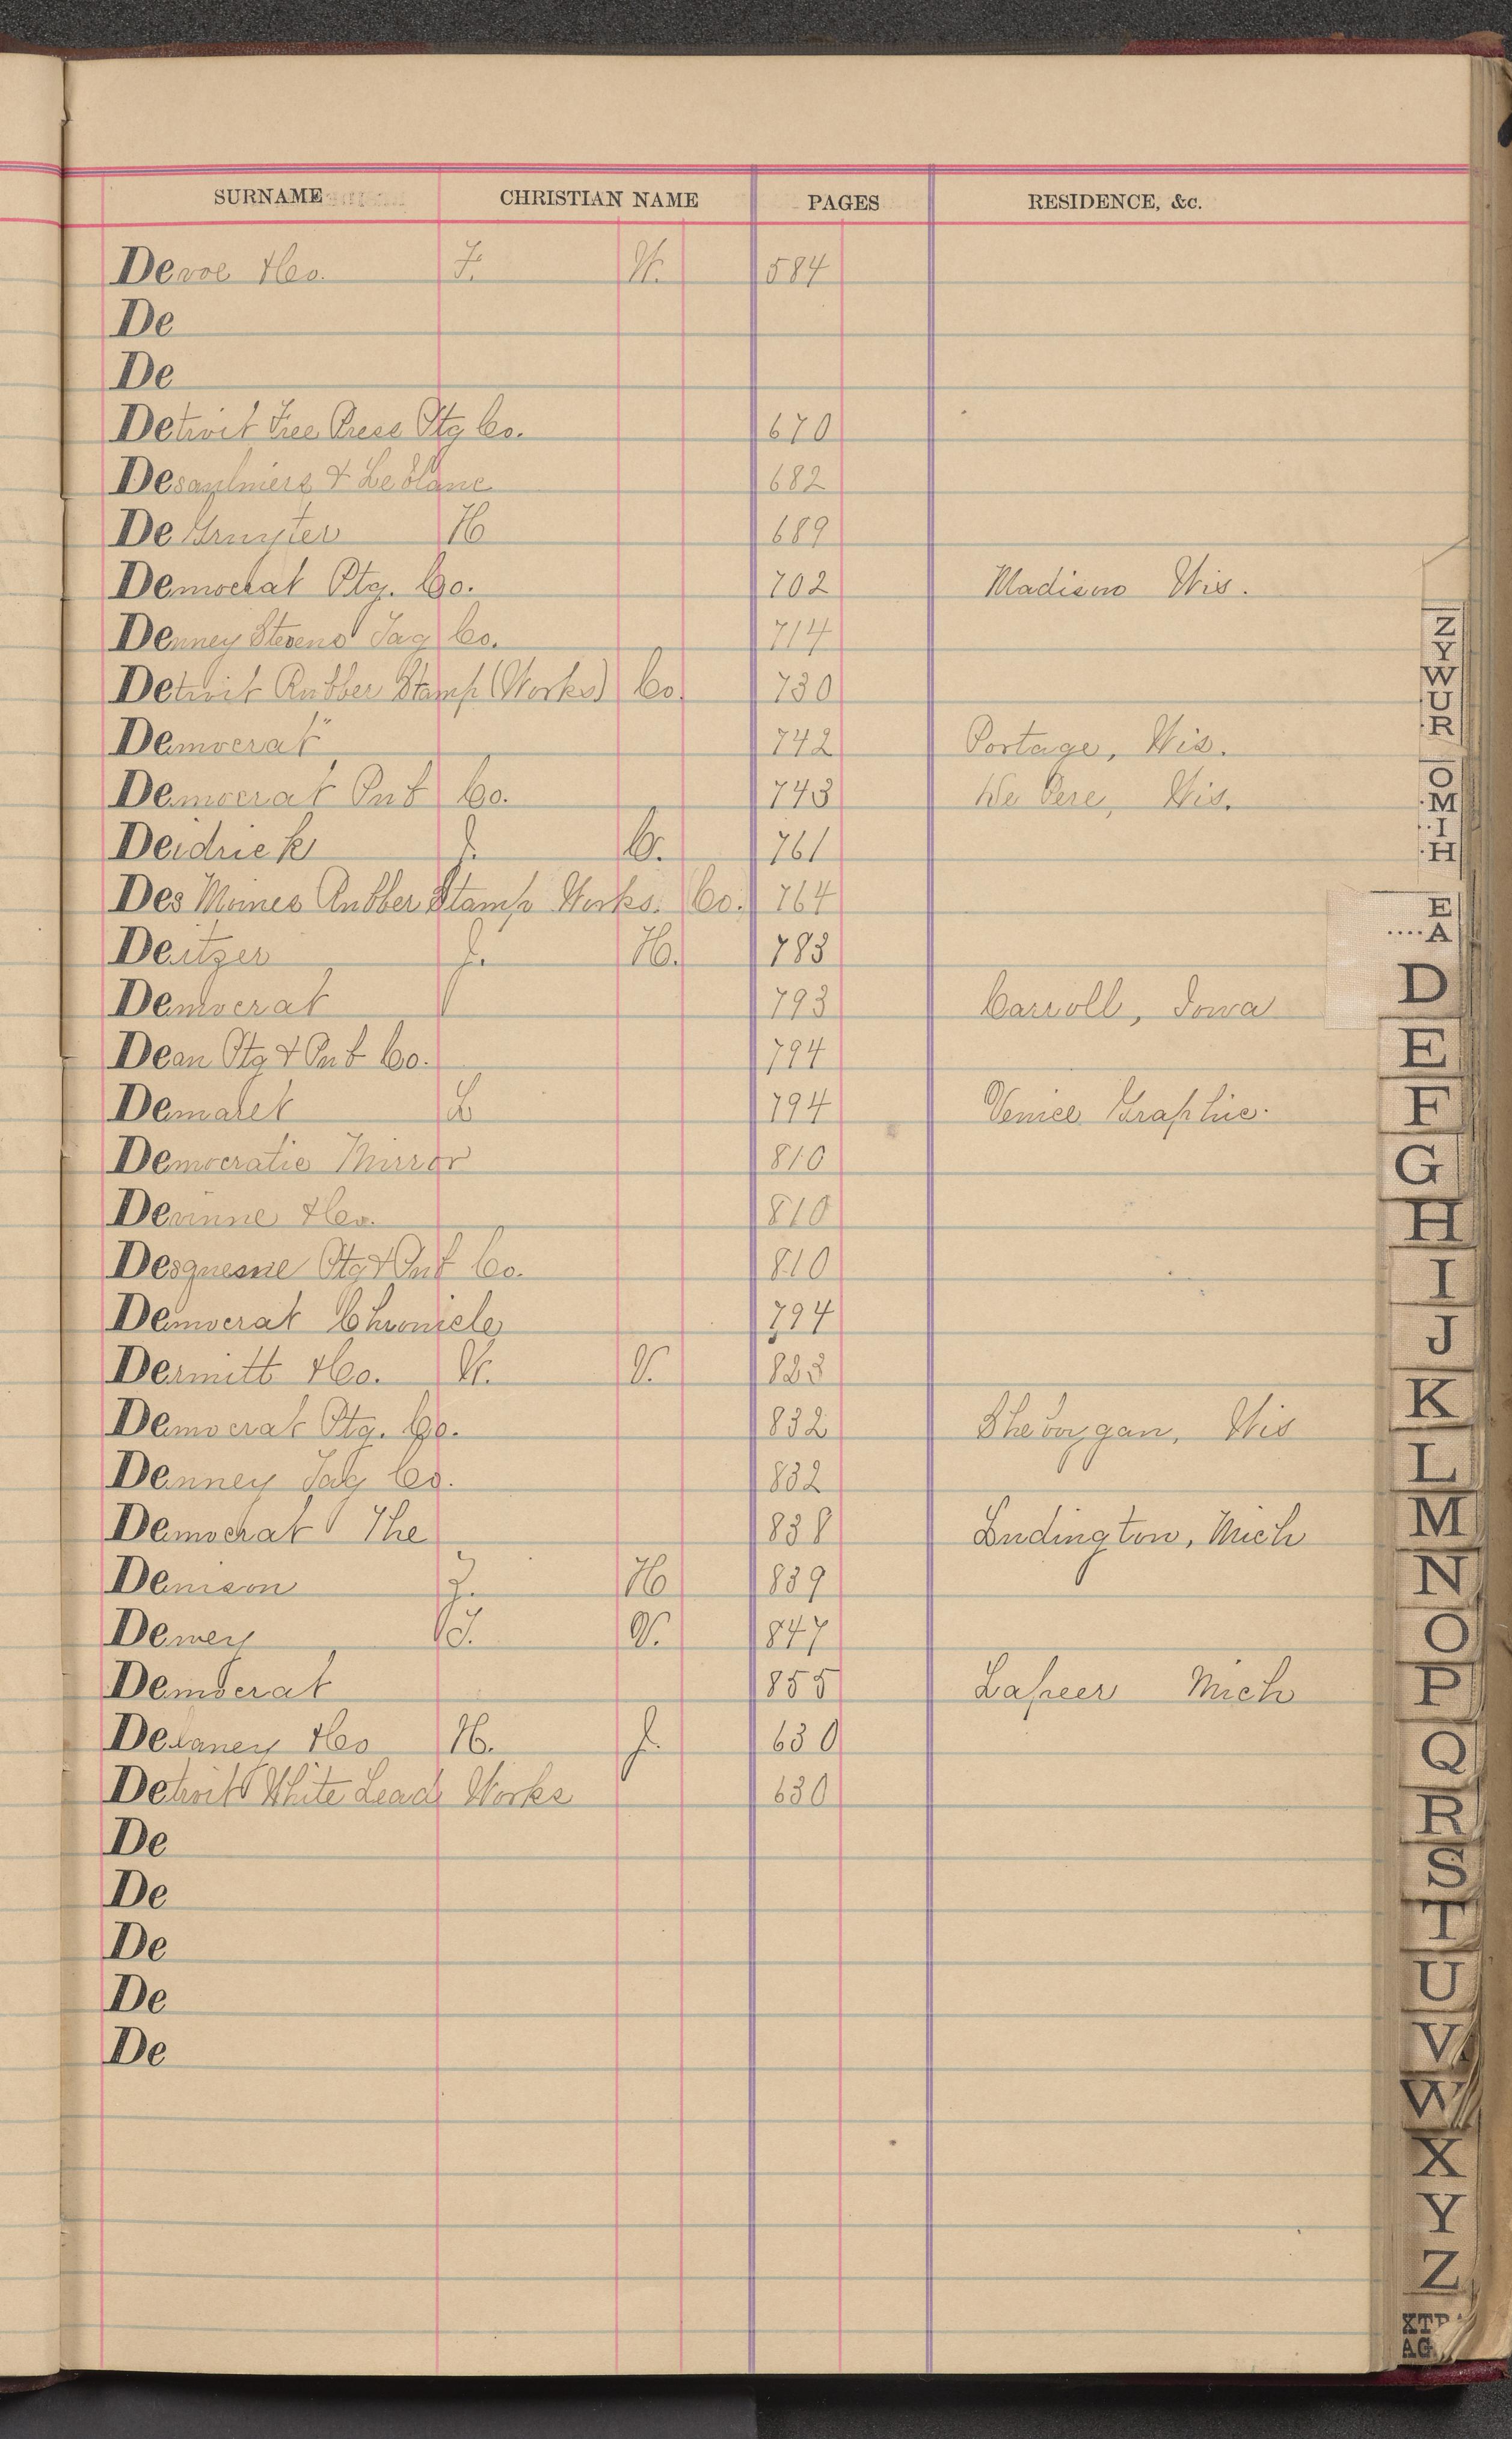 SURNAME CHRISTIAN NAME PAGES RESIDENCE, &c.
Devoe & Co. F. W. 584
De
De
Detroit Free Press Ptg Co. 670
Desaulniers & Le Blanc 682
De Gruyter H 689
Democrat Ptg. Co. 702 Madison Wis.
Denney Stevens Tag Co. 714
Detroit Rubber Stamp (Works) Co. 730
Democrat" 742 Portage, Wis.
Democrat Pub Co. 743 De Pere, Wis.
Deidrick J. C. 761
Des Moines Rubber Stamp Works. Co. 764
Deitzer J. H. 783
Democrat 793 Carroll, Iowa
Dean Ptg & Pub Co. 794
Demaret L 794 Venice Graphic.
Democratic Mirror 810
Devinne & Co. 810
Desquesne Ptg & Pub Co. 810
Democrat Chronicle 794
Dermitt & Co. W. V. 823
Democrat Ptg. Co. 832 Sheboygan, Wis
Denney Tag Co. 832
Democrat The 838 Ludington, Mich
Denison J. H 839
Dewey J. V. 847
Democrat 855 Lapeer Mich
Delaney & Co H. J. 630
Detroit White Lead Works 630
De
De
De
De
De
Z
Y
W
U
R
O
M
I
H
E
A
D
E
F
G
H
I
J
K
L
M
N
O
P
Q
R
S
T
U
V
W
X
Y
Z